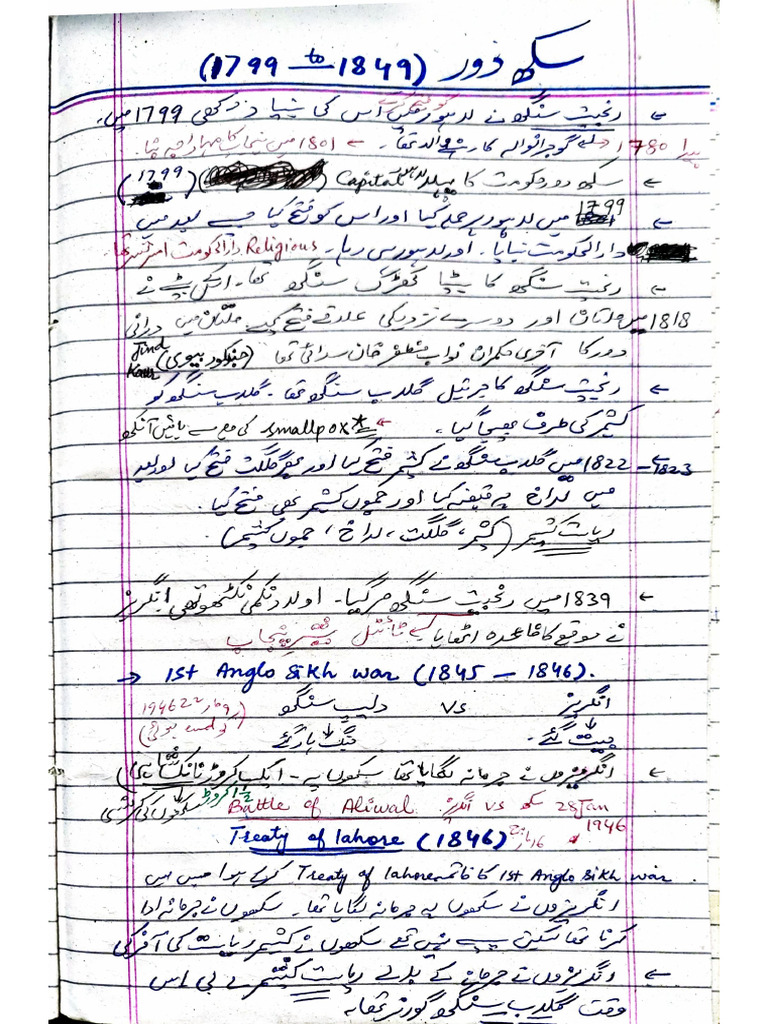 سکھ دور (1799 to 1849)
← رنجیت سنگھ نے لاہور کو فتح کر کے اس کی بنیاد رکھی 1799 میں۔
پیدا 1780 گوجرانوالہ کا رہنے والا تھا۔ ← 1801 میں پنجاب کا مہاراجہ بنا۔
← سکھ دور حکومت کا پہلا Capital لاہور (1799)
← 1799 میں لاہور پر حملہ کیا اور اس کو فتح کیا جسے بعد میں
دارالحکومت بنایا۔ اور لاہور ہی رہا۔ Religious دارالحکومت امرتسر تھا۔
← رنجیت سنگھ کا بیٹا کھڑک سنگھ تھا۔ اسکے بیٹے نے
1818 میں ملتان اور دوسرے نزدیکی علاقے فتح کیے ملتان میں درانی
دور کا آخری حکمران نواب مظفر خان سدوزائی تھا (جند کور بیوی) Jind Kaur
← رنجیت سنگھ کا جرنیل گلاب سنگھ تھا۔ گلاب سنگھ کو
کشمیر کی طرف بھیجا گیا۔ ← *smallpox کی وجہ سے بائیں آنکھ
← 1822 – 1823 میں گلاب سنگھ نے کشمیر فتح کیا اور پھر گلگت فتح کیا اور بعد
میں لداخ پہ قبضہ کیا اور جموں کشمیر بھی فتح کیا۔
ریاست کشمیر (کشمیر، گلگت، لداخ، جموں کشمیر)
← 1839 میں رنجیت سنگھ مر گیا۔ اولاد نکمی نکٹھو تھی انگریز
نے موقع کا فائدہ اٹھایا ٹائٹل شیر پنجاب
→ 1st Anglo Sikh war (1845 – 1846).
انگریز vs دلیپ سنگھ
جیت گئے۔ جنگ ہار گئے
← انگریزوں نے جرمانہ لگایا تھا سکھوں پہ۔ ایک کروڑ نانک شاہی
1½ کروڑ Battle of Aliwal انگریز vs سکھ 28 Jan 1946
سکھوں کی کرنسی
Treaty of lahore (1846)
1st Anglo sikh war کا خاتمہ Treaty of lahore کرکے ہوا جس میں
انگریزوں نے سکھوں پہ جرمانہ لگایا تھا۔ سکھوں نے جرمانہ ادا
کرنا تھا لیکن پیسے نہیں تھے سکھوں نے کشمیر ریاست کی آفر کی
← انگریزوں نے جرمانے کے بدلے ریاست کشمیر لے لی اس
وقت گلاب سنگھ گورنر تھا۔